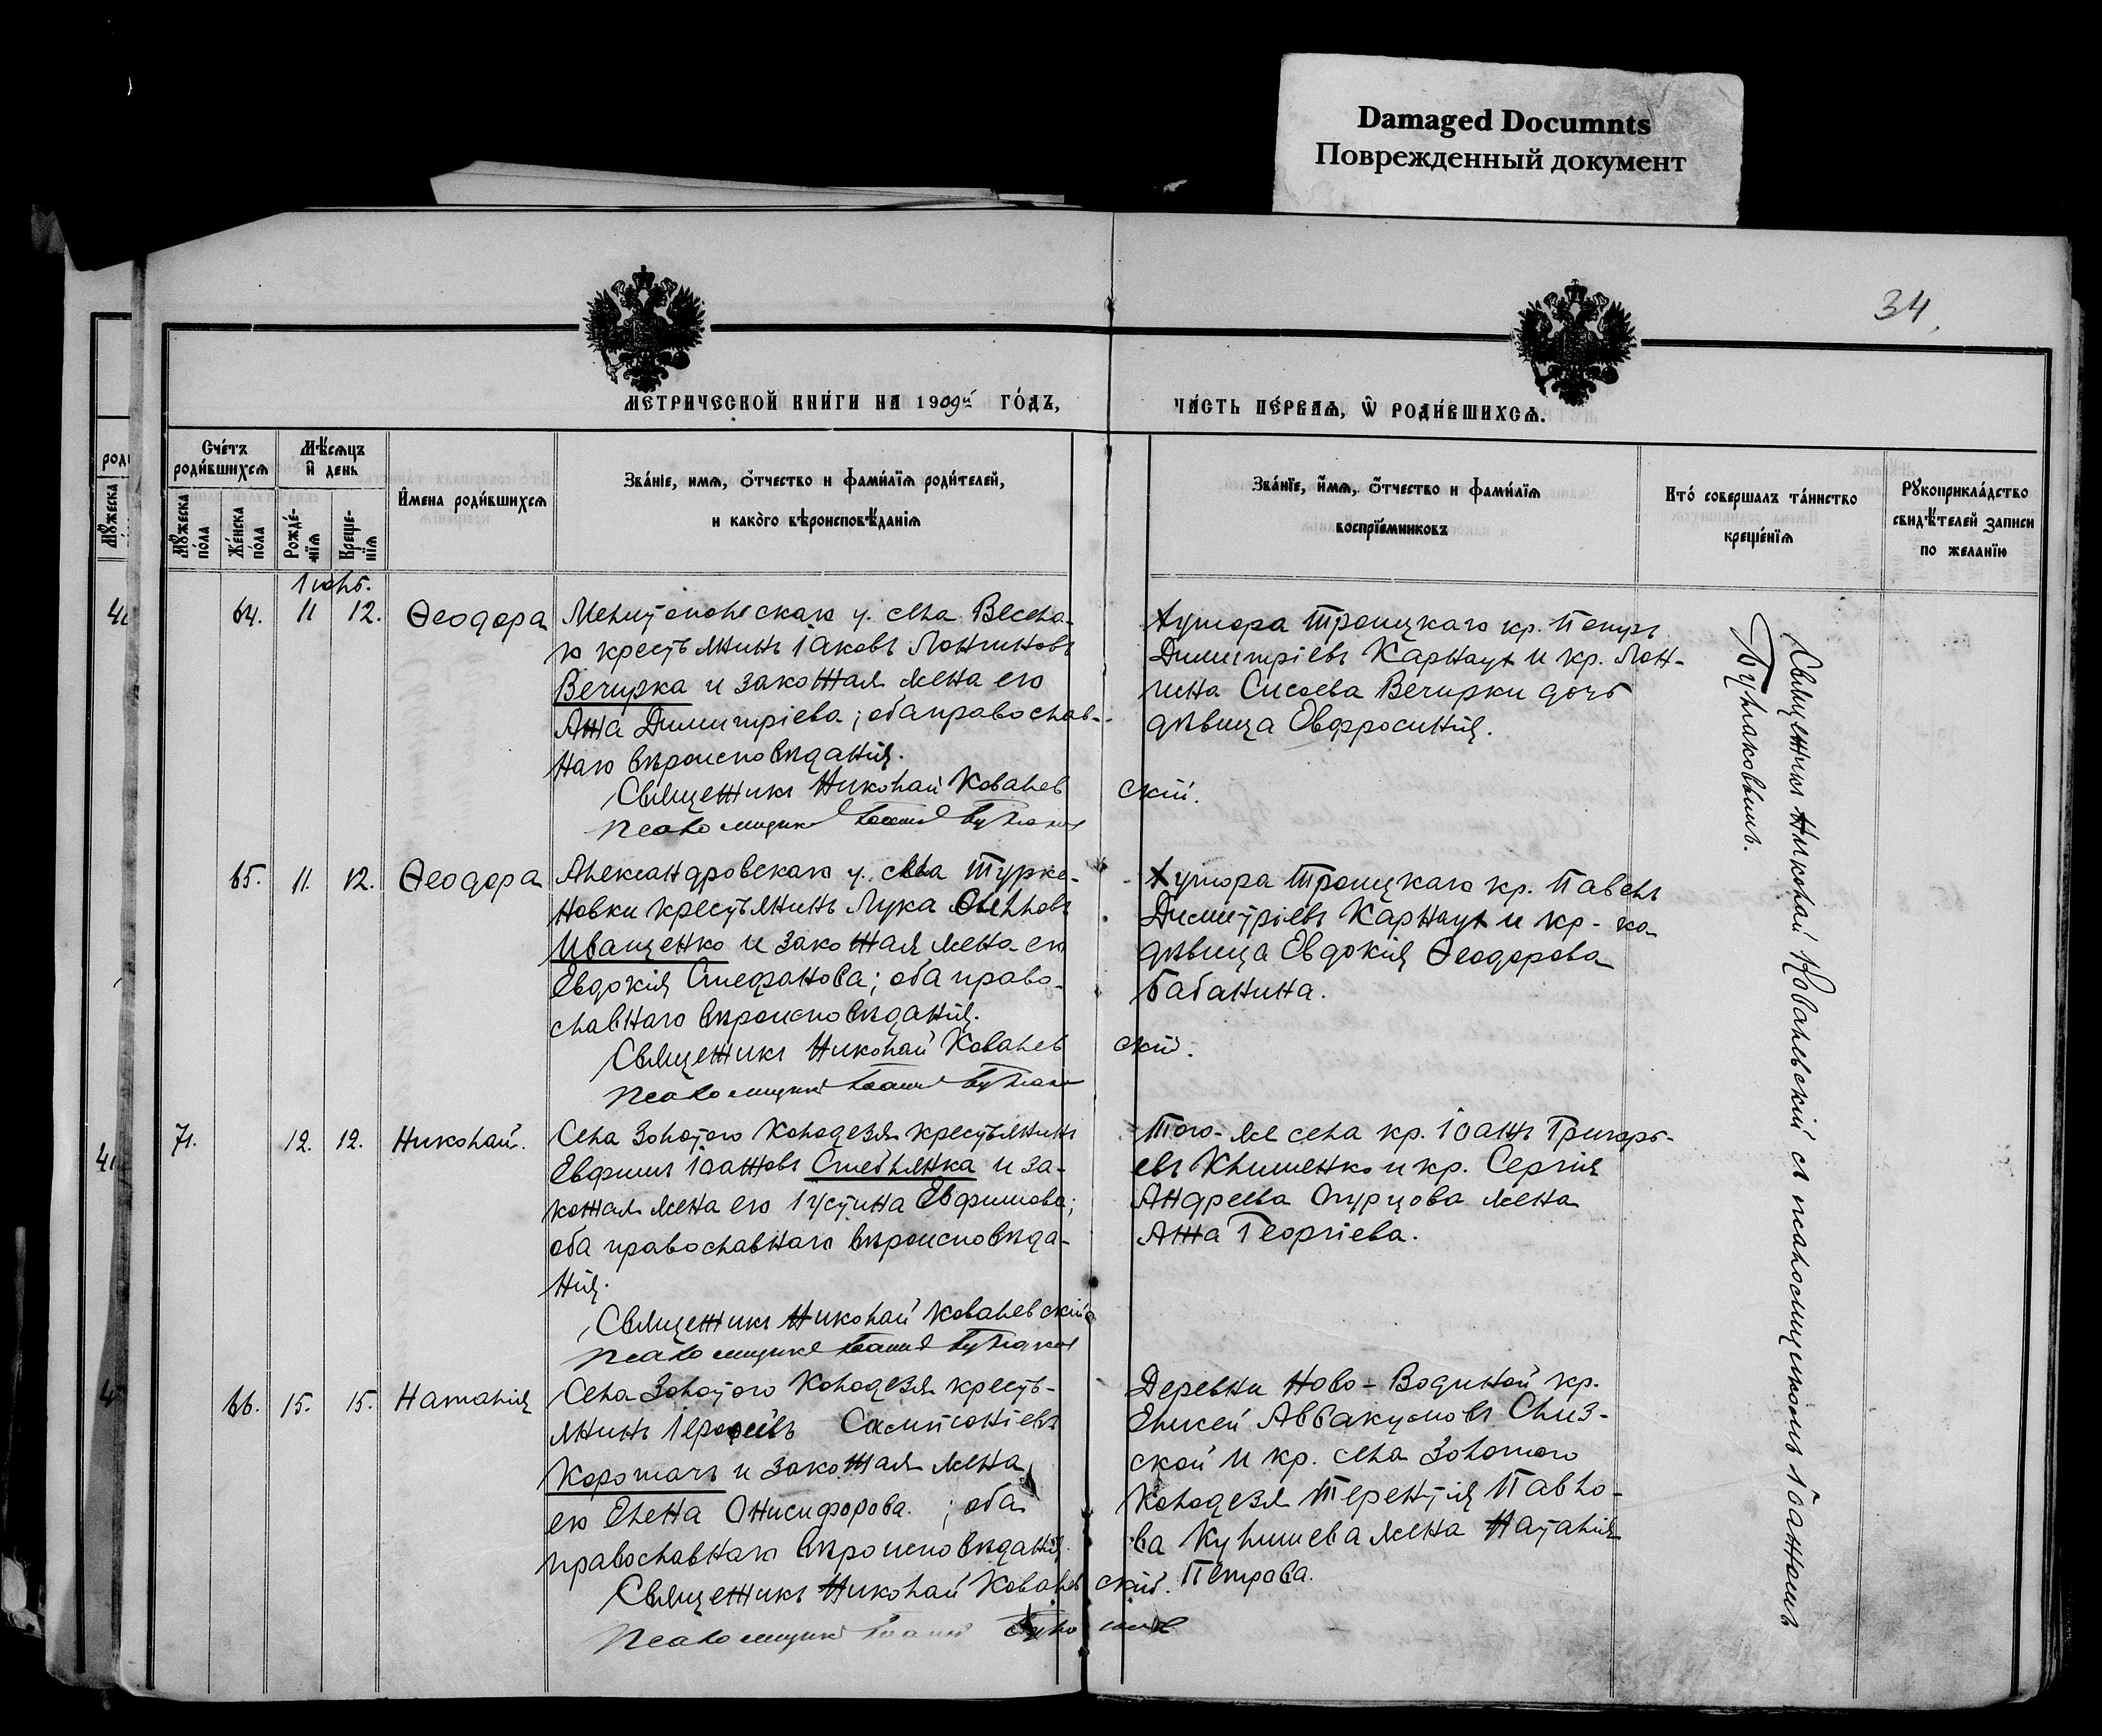 Damaged Documnts
Поврежденный документ
34.
МЕТРИЧЕСКОЙ КНИГИ НА 1909й ГОДЪ,
ЧАСТЬ ПЕРВАЯ, Ѡ РОДИВШИХСЯ.
Счетъ родившихся
Мѣсяцъ и день
Имена родившихся
Званіе, имя, отчество и фамилія родителей,
и какого вѣроисповѣданія
Званіе, имя, отчество и фамилія
воспріемниковъ
Кто совершалъ таинство
крещенія
Рукоприкладство
свидѣтелей записи
по желанію
Мужеска пола
Женска пола
Рожденія
Крещенія
Іюль.
64. 11 12. Ѳеодора
Мелитопольскаго у. села Весела-
го крестьянинъ Іаковъ Лонгиновъ
Вечирка и законная жена его
Анна Димитріева; оба православ-
наго вѣроисповѣданія.
Священникъ Николай Ковалевскій.
Псаломщикъ Іоаннъ Булаковъ
Хутора Троицкаго кр. Петръ
Димитріевъ Карнаухъ и кр. Лон-
гина Сисоева Вечирки дочь
дѣвица Евфросинія.
65. 11. 12. Ѳеодора
Александровскаго у. села Турке-
новки крестьянинъ Лука
Иващенко и законная жена его
Евдокія Стефанова; оба право-
славнаго вѣроисповѣданія.
Священникъ Николай Ковалевскій.
Псаломщикъ Іоаннъ Булаковъ
Хутора Троицкаго кр. Павелъ
Димитріевъ Карнаухъ и кр-ка
дѣвица Евдокія Ѳеодорова
Бабанина.
71. 12. 12. Николай.
Села Золотого Колодезя крестьянинъ
Евфимъ Іоанновъ Стеблянка и за-
конная жена его Іустина Евфимова;
оба православнаго вѣроисповѣда-
нія.
Священникъ Николай Ковалевскій
Псаломщикъ Іоаннъ Булаковъ
Того-же села кр. Іоаннъ Григорь-
евъ Клименко и кр. Сергія
Андреева Огурцова жена
Анна Георгіева.
66. 15. 15. Наталія
Села Золотого Колодезя кресть-
янинъ Іероѳей Сампсоніевъ
Коротачъ и законная жена
его Елена Онисифорова.; оба
православнаго вѣроисповѣданія.
Священникъ Николай Ковалевскій.
Псаломщикъ Іоаннъ
Деревни Ново-Водяной кр.
Елисей Аввакумовъ Слиз-
ской и кр. села Золотого
Колодезя Терентія Павло-
ва Кулишева жена Наталія
Петрова.
Священникъ Николай Ковалевскій съ псаломщикомъ Іоанномъ
Булаковымъ.